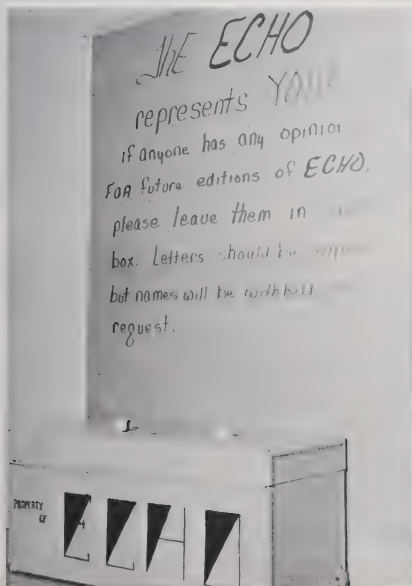 thE ECHO
represents YOU
if anyone has any opinion
FOR future editions of ECHO,
please leave them in
box. Letters should be
but names will be withheld
request.
PROPERTY
OF
ECHO